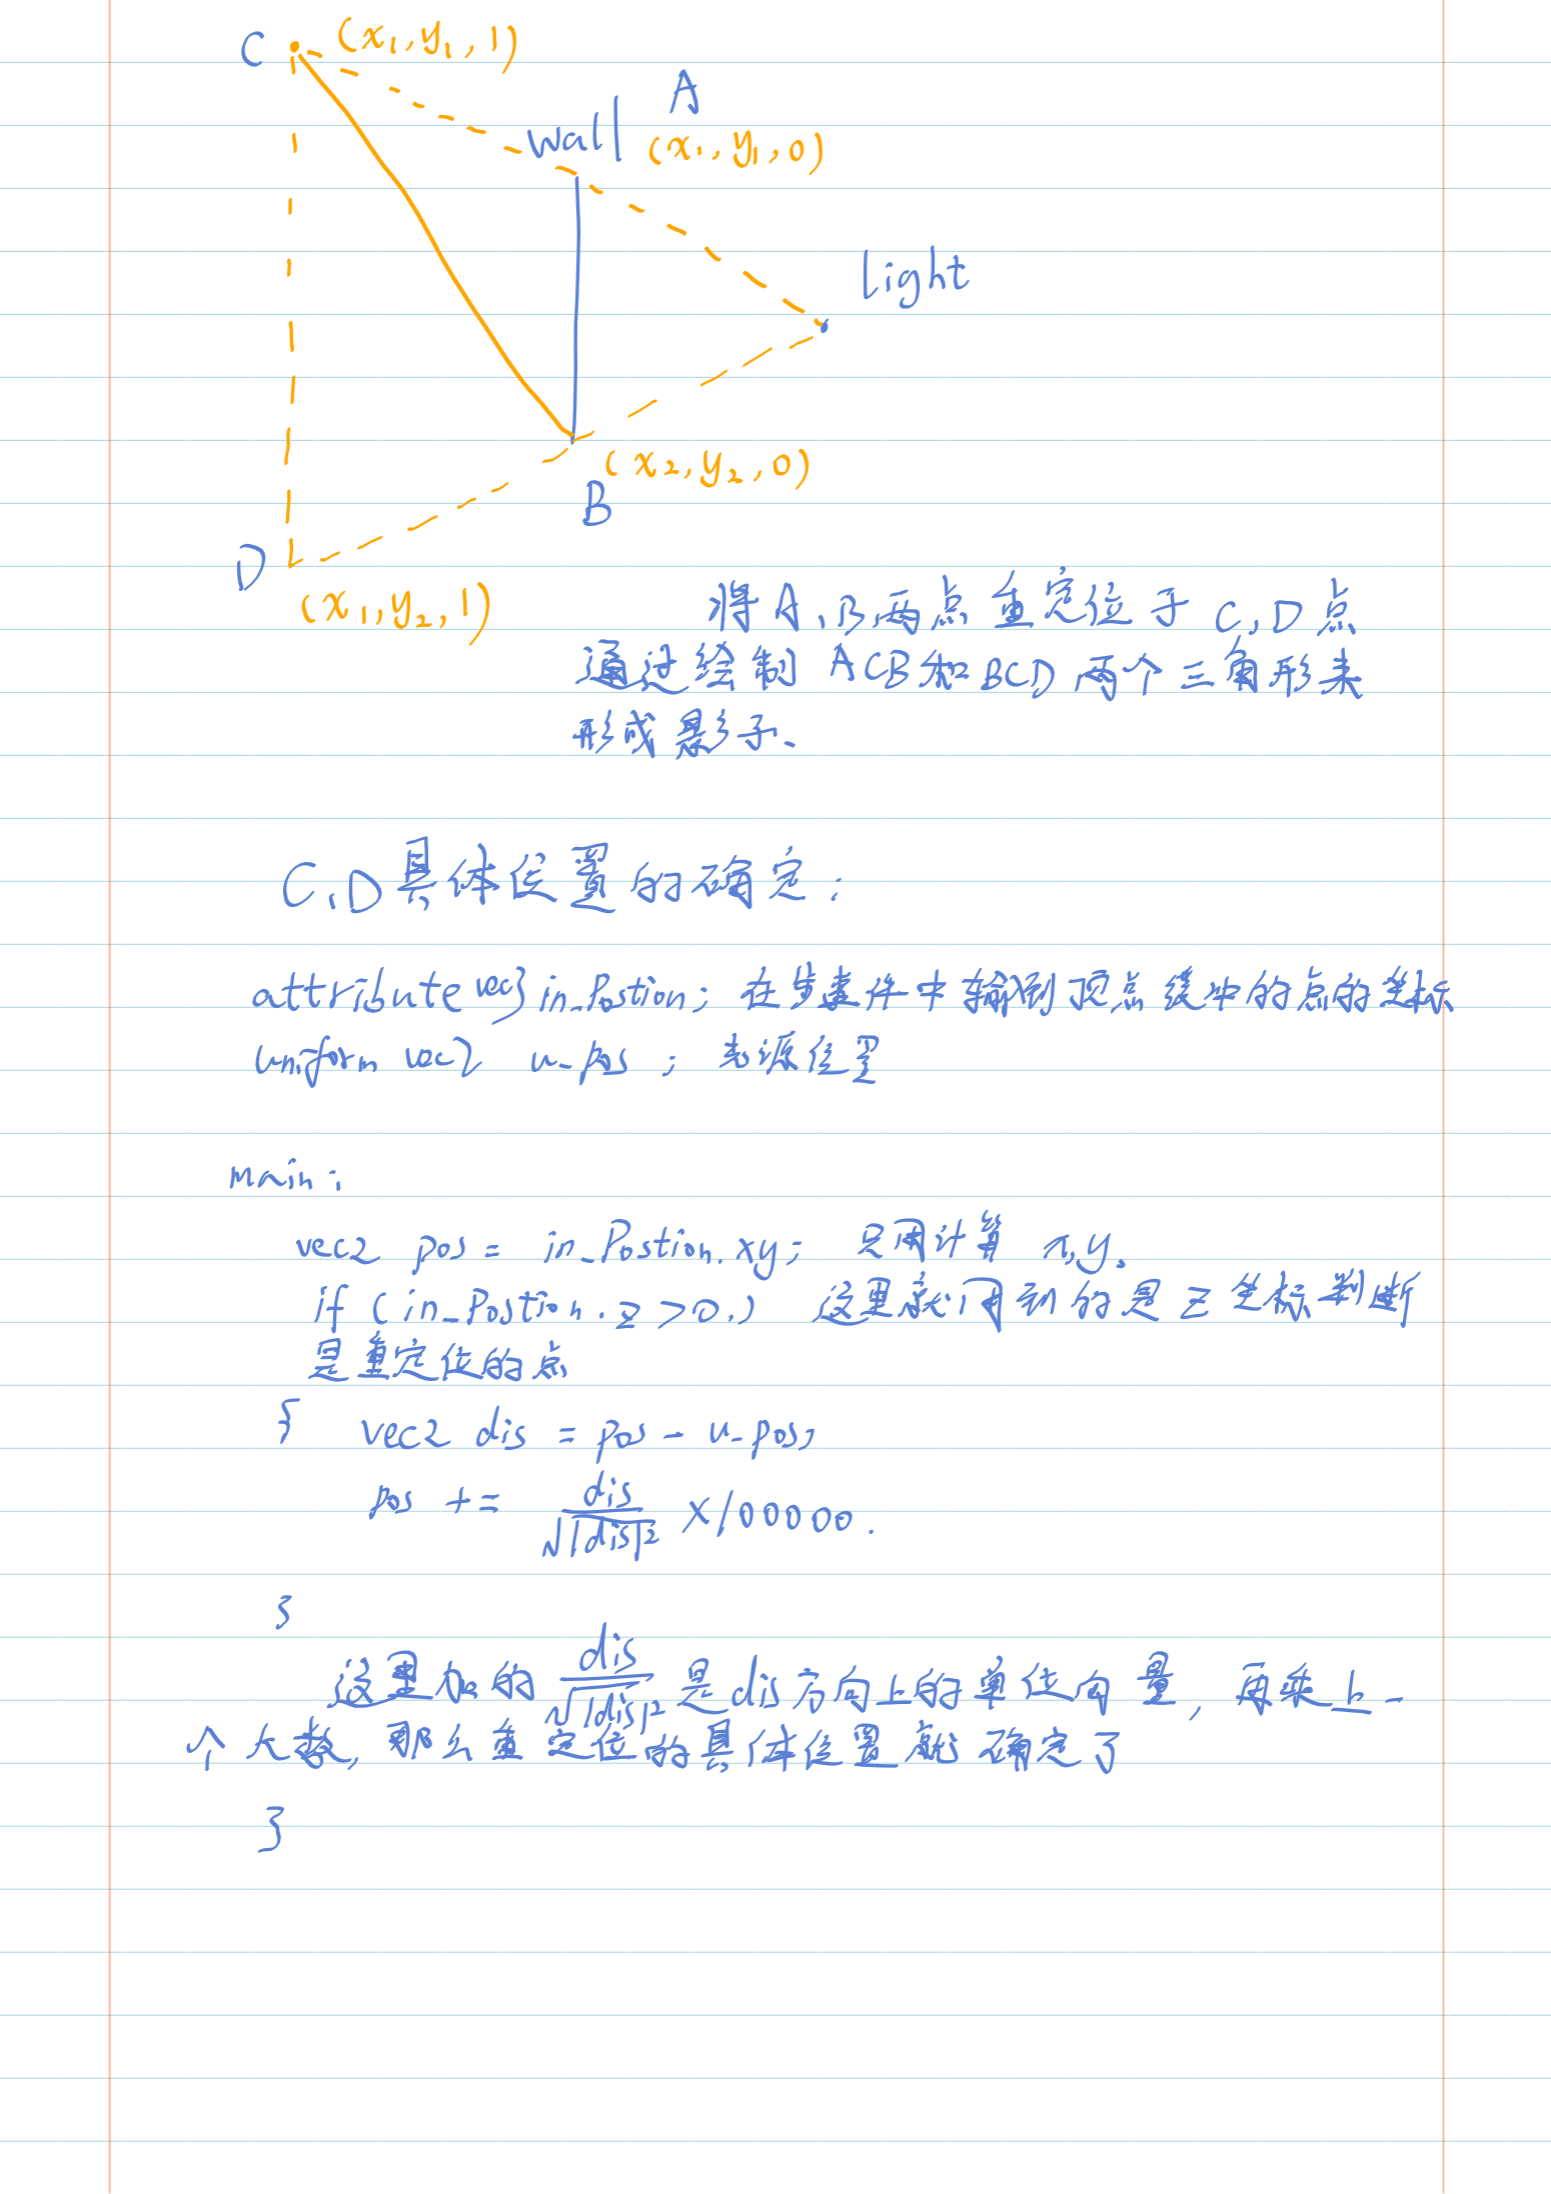 C (x₁,y₁,1)
A
wall (x₁,y₁,0)
light
(x₂,y₂,0)
B
D
(x₁,y₂,1)
将A、B两点重定位于C,D点
通过绘制ACB和BCD两个三角形来
形成影子、
C、D具体位置的确定:
attribute vec3 in_Postion; 在步事件中输到顶点缓冲的点的坐标
uniform vec2 u_pos; 光源位置
main:
vec2 pos = in_Postion.xy; 只用计算x,y。
if (in_Postion.z>0.) 这里就用到的是z坐标判断
是重定位的点
{ vec2 dis = pos - u_pos;
pos += dis/√|dis|² ×100000.
}
这里加的 dis/√|dis|² 是dis方向上的单位向量, 再乘上一
个大数, 那么重定位的具体位置就确定了
}